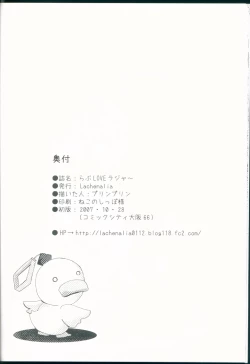 奥付
●誌名：らぶLOVEラジャー
●発行：Lachenalia
●描いたん：プリンプリン
●印刷：ねこのしっぽ様
●初版：2007・10・28
(コミックシティ大阪66)
●HP→http://lachenalia0112.blog118.fc2.com/